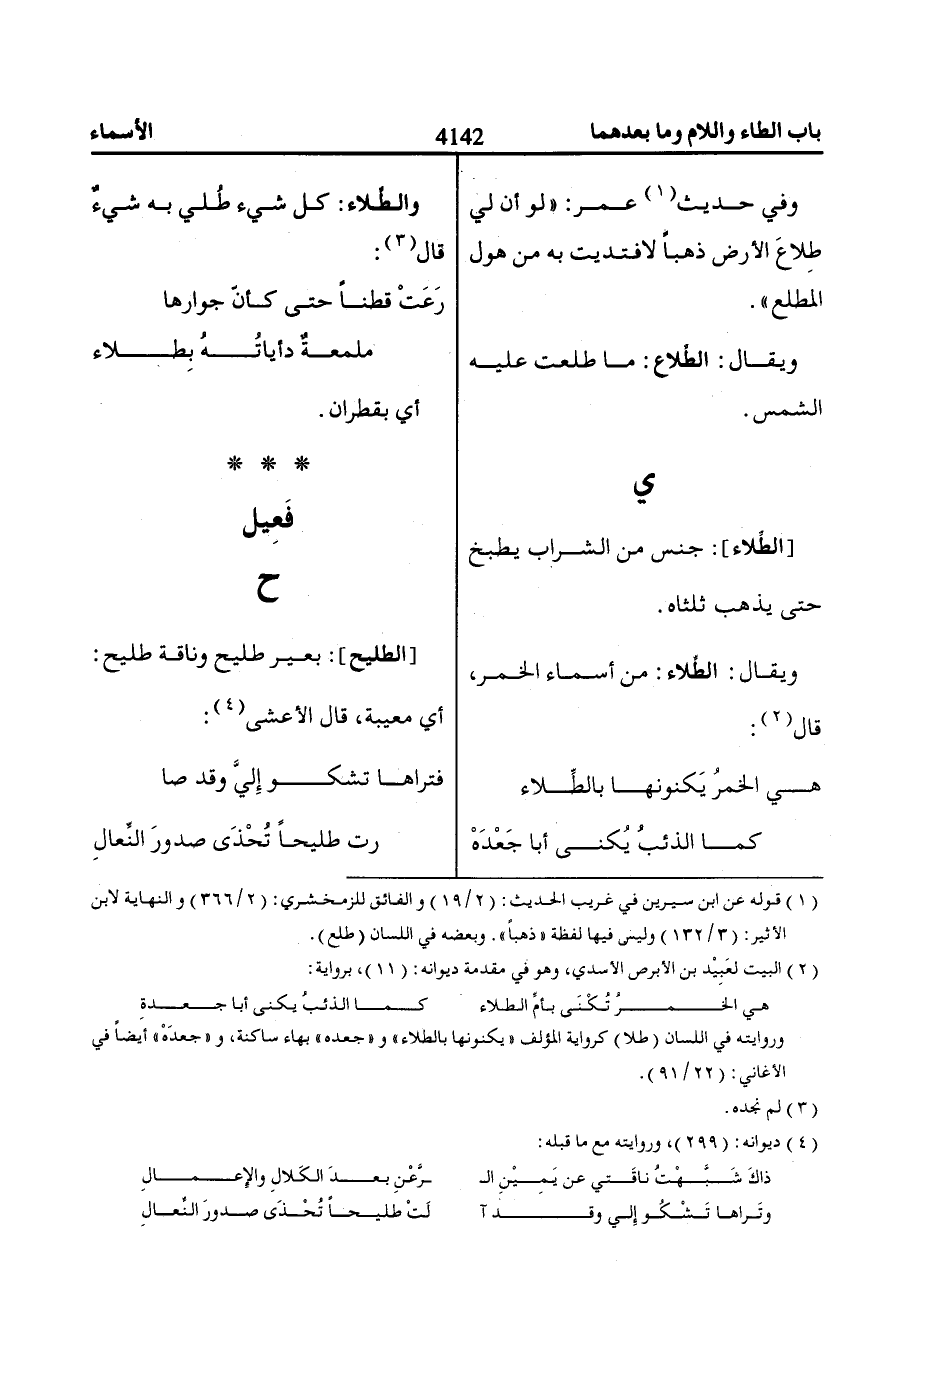 باب الطاء واللام وما بعدهما
4142
الأسماء
وفي حديث(١) عمر: «لو أن لي
طِلاعَ الأرض ذهباً لافتديت به من هول
المطلع».
ويقال: الطِّلاع: ما طلعت عليه
الشمس.
ي
[الطِّلاء]: جنس من الشراب يطبخ
حتى يذهب ثلثاه.
ويقال: الطِّلاء: من أسماء الخمر،
قال(٢):
هي الخمرُ يَكنونها بالطِّلاء
كما الذئبُ يُكنى أبا جَعْدَهْ
والطِّلاء: كل شيء طُلي به شيءٌ
قال(٣):
رَعَتْ قطناً حتى كأنّ جوارها
ملمعةٌ دأياتُهُ بِطلاء
أي بقطران.
* * *
فَعِيل
ح
[الطليح]: بعير طليح وناقة طليح:
أي معيبة، قال الأعشى(٤):
فتراها تشكو إليَّ وقد صا
رت طليحاً تُحْذَى صدورَ النِّعالِ
(١) قوله عن ابن سيرين في غريب الحديث: (١٩/٢) و الفائق للزمخشري: (٣٦٦/٢) و النهاية لابن
الأثير: (١٣٢/٣) وليس فيها لفظة «ذهباً». وبعضه في اللسان (طلع).
(٢) البيت لعَبِيْد بن الأبرص الأسدي، وهو في مقدمة ديوانه: (١١)، برواية:
هي الخمرُ تُكْنَى بأمِّ الطلاء كما الذئبُ يكنى أبا جعدةِ
وروايته في اللسان (طلا) كرواية المؤلف «يكنونها بالطلاء» و «جعده» بهاء ساكنة، و «جعدَهْ» أيضاً في
الأغاني: (٩١/٢٢).
(٣) لم نجده.
(٤) ديوانه: (٢٩٩)، وروايته مع ما قبله:
ذاكَ شَبَّهْتُ ناقَتي عن يَمِيْنِ الـ ـرَّعْنِ بعدَ الكَلالِ والإعمالِ
وتَراها تَشْكُو إلي وقد آ لَتْ طليحاً تُحْذَى صدورَ النِّعالِ